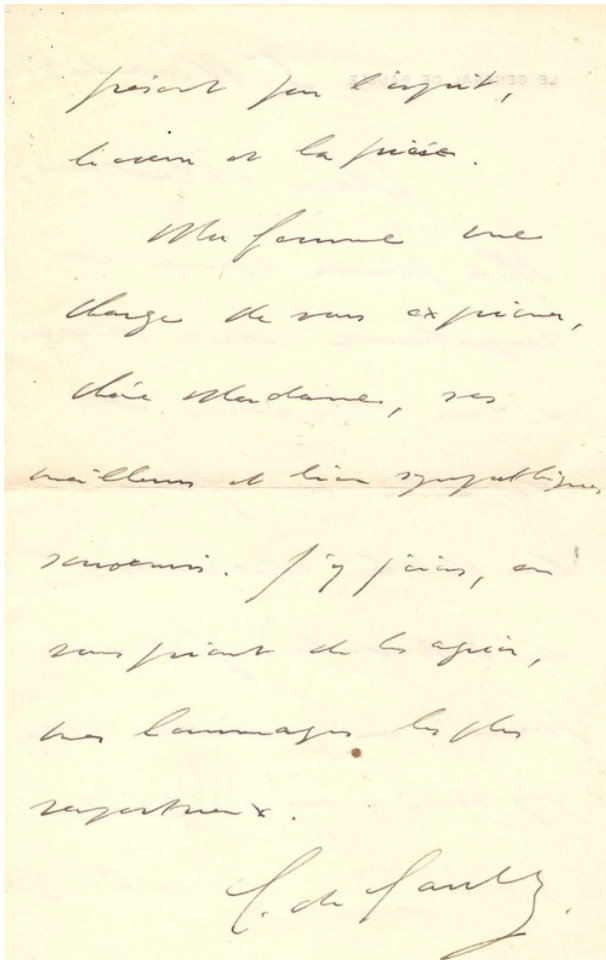 LE GÉNÉRAL DE GAULLE
présent par l'esprit,
le cœur et la pensée.
Ma femme me
charge de vous exprimer,
chère Madame, ses
meilleurs et bien sympathiques
souvenirs. J'y joins, en
vous priant de les agréer,
mes hommages les plus
respectueux.
C. de Gaulle.